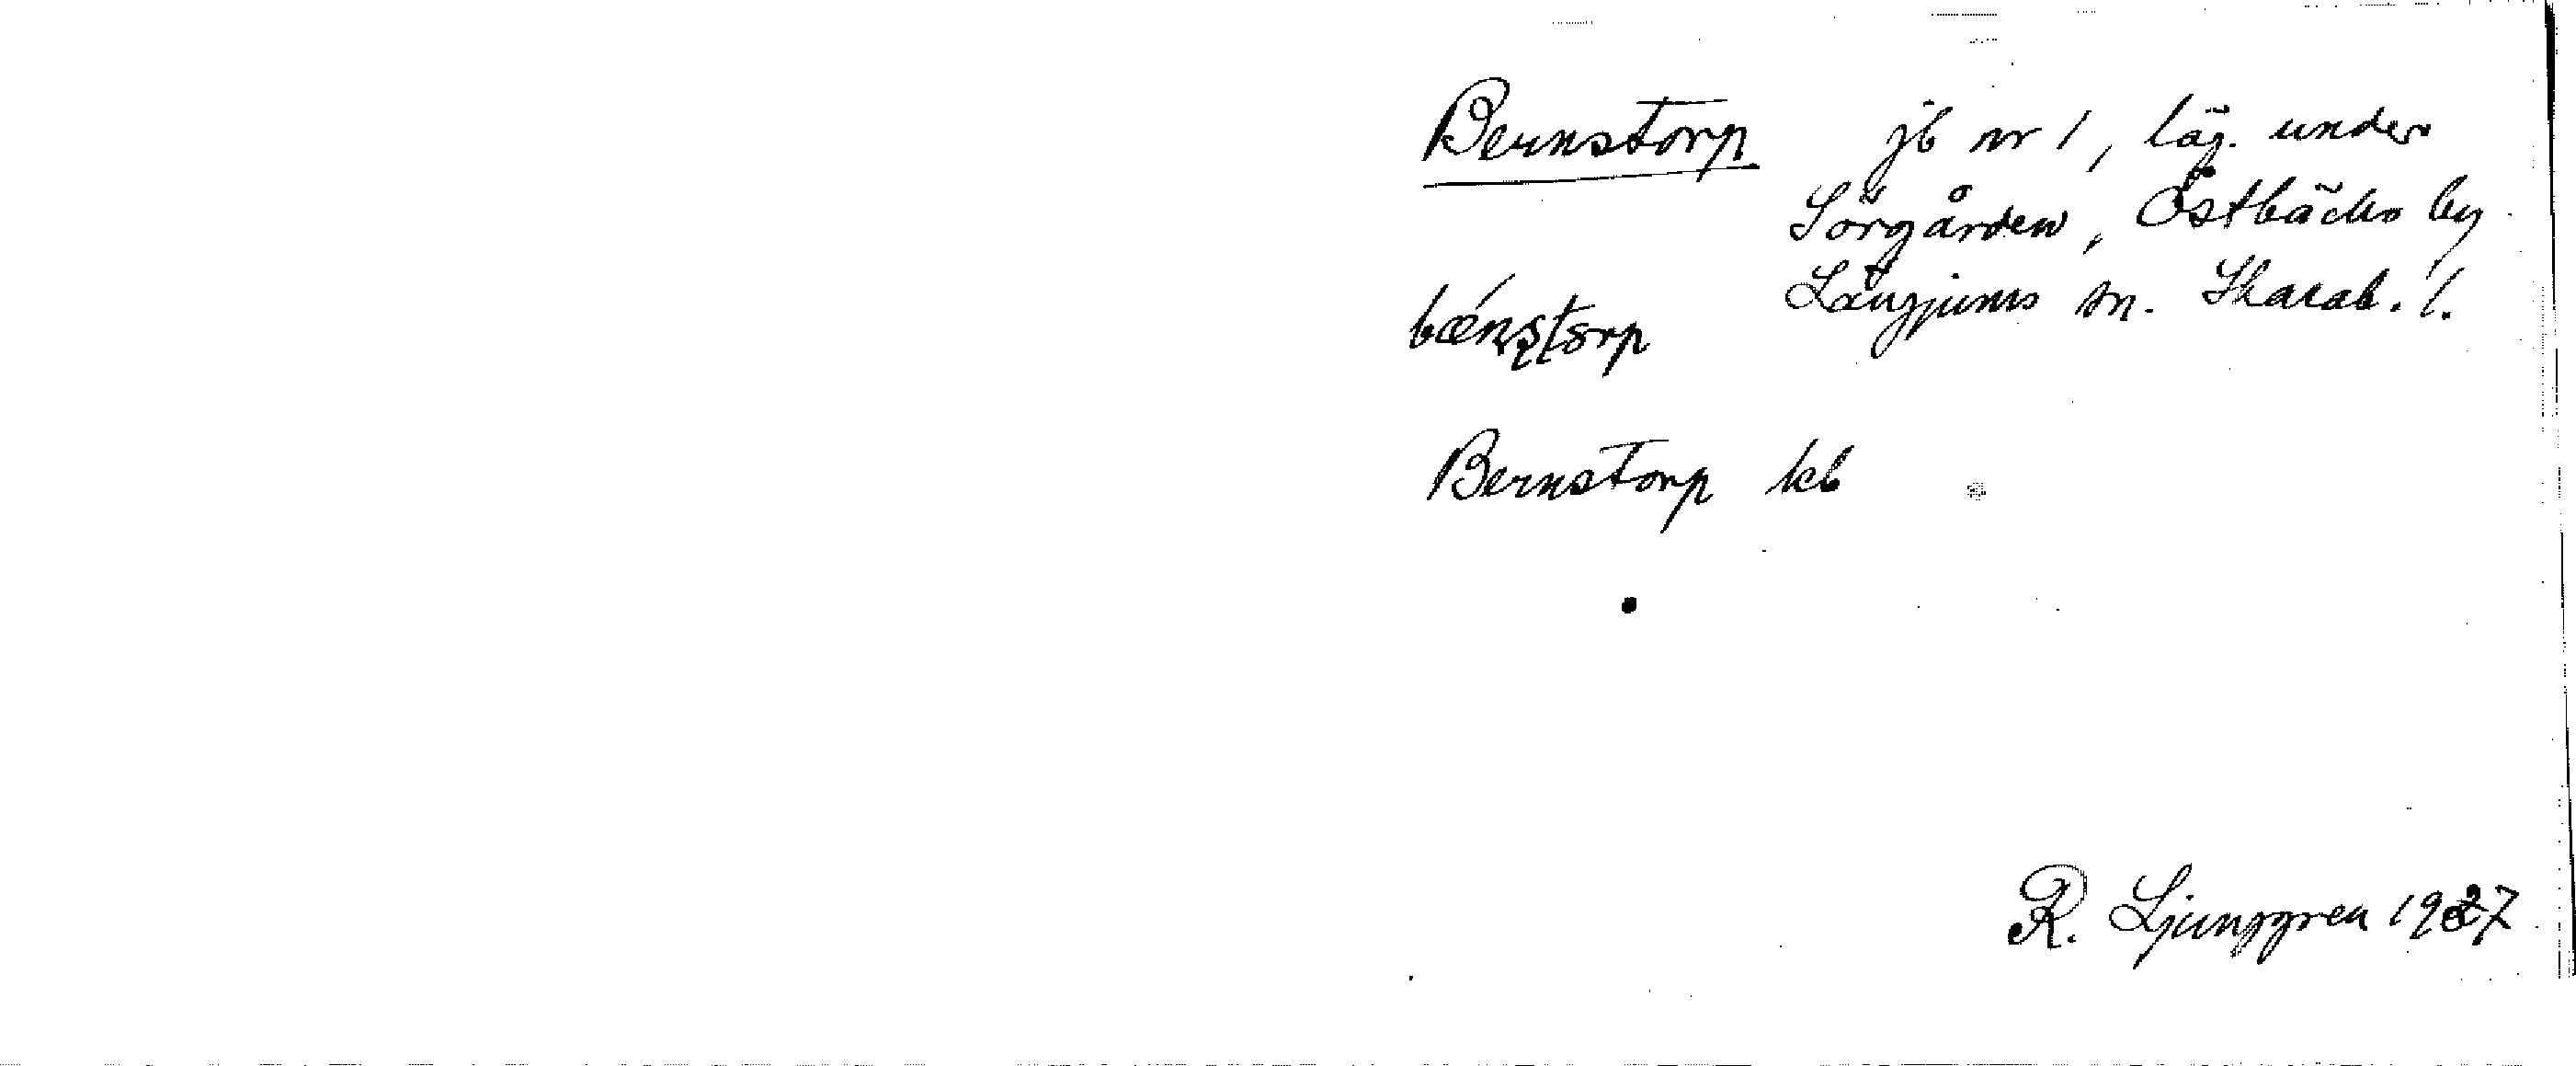 Bernstorp jb nr 1, läg. under
Sörgården, Östbäcks by
Längjums sn. Skarab. l.
bǽnstorp
Bernstorp kb
R. Ljunggren 1927